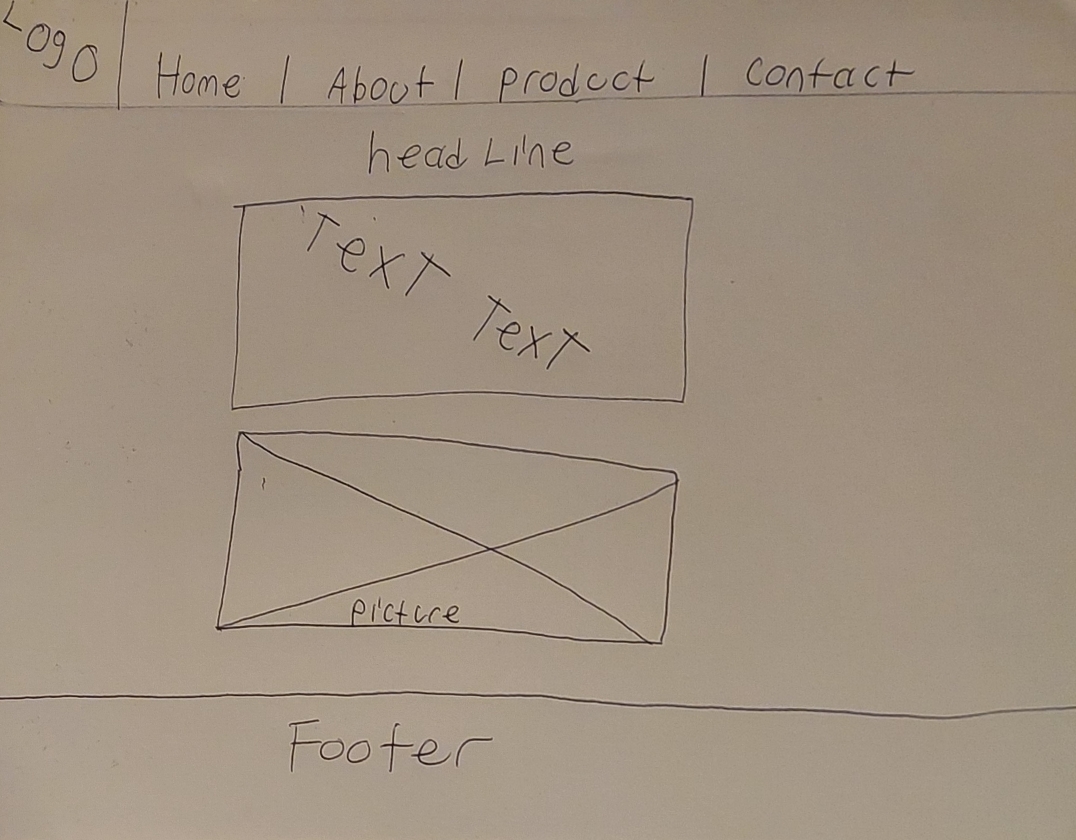 Logo | Home | About | product | Contact
head Line
Text
Text
picture
Footer